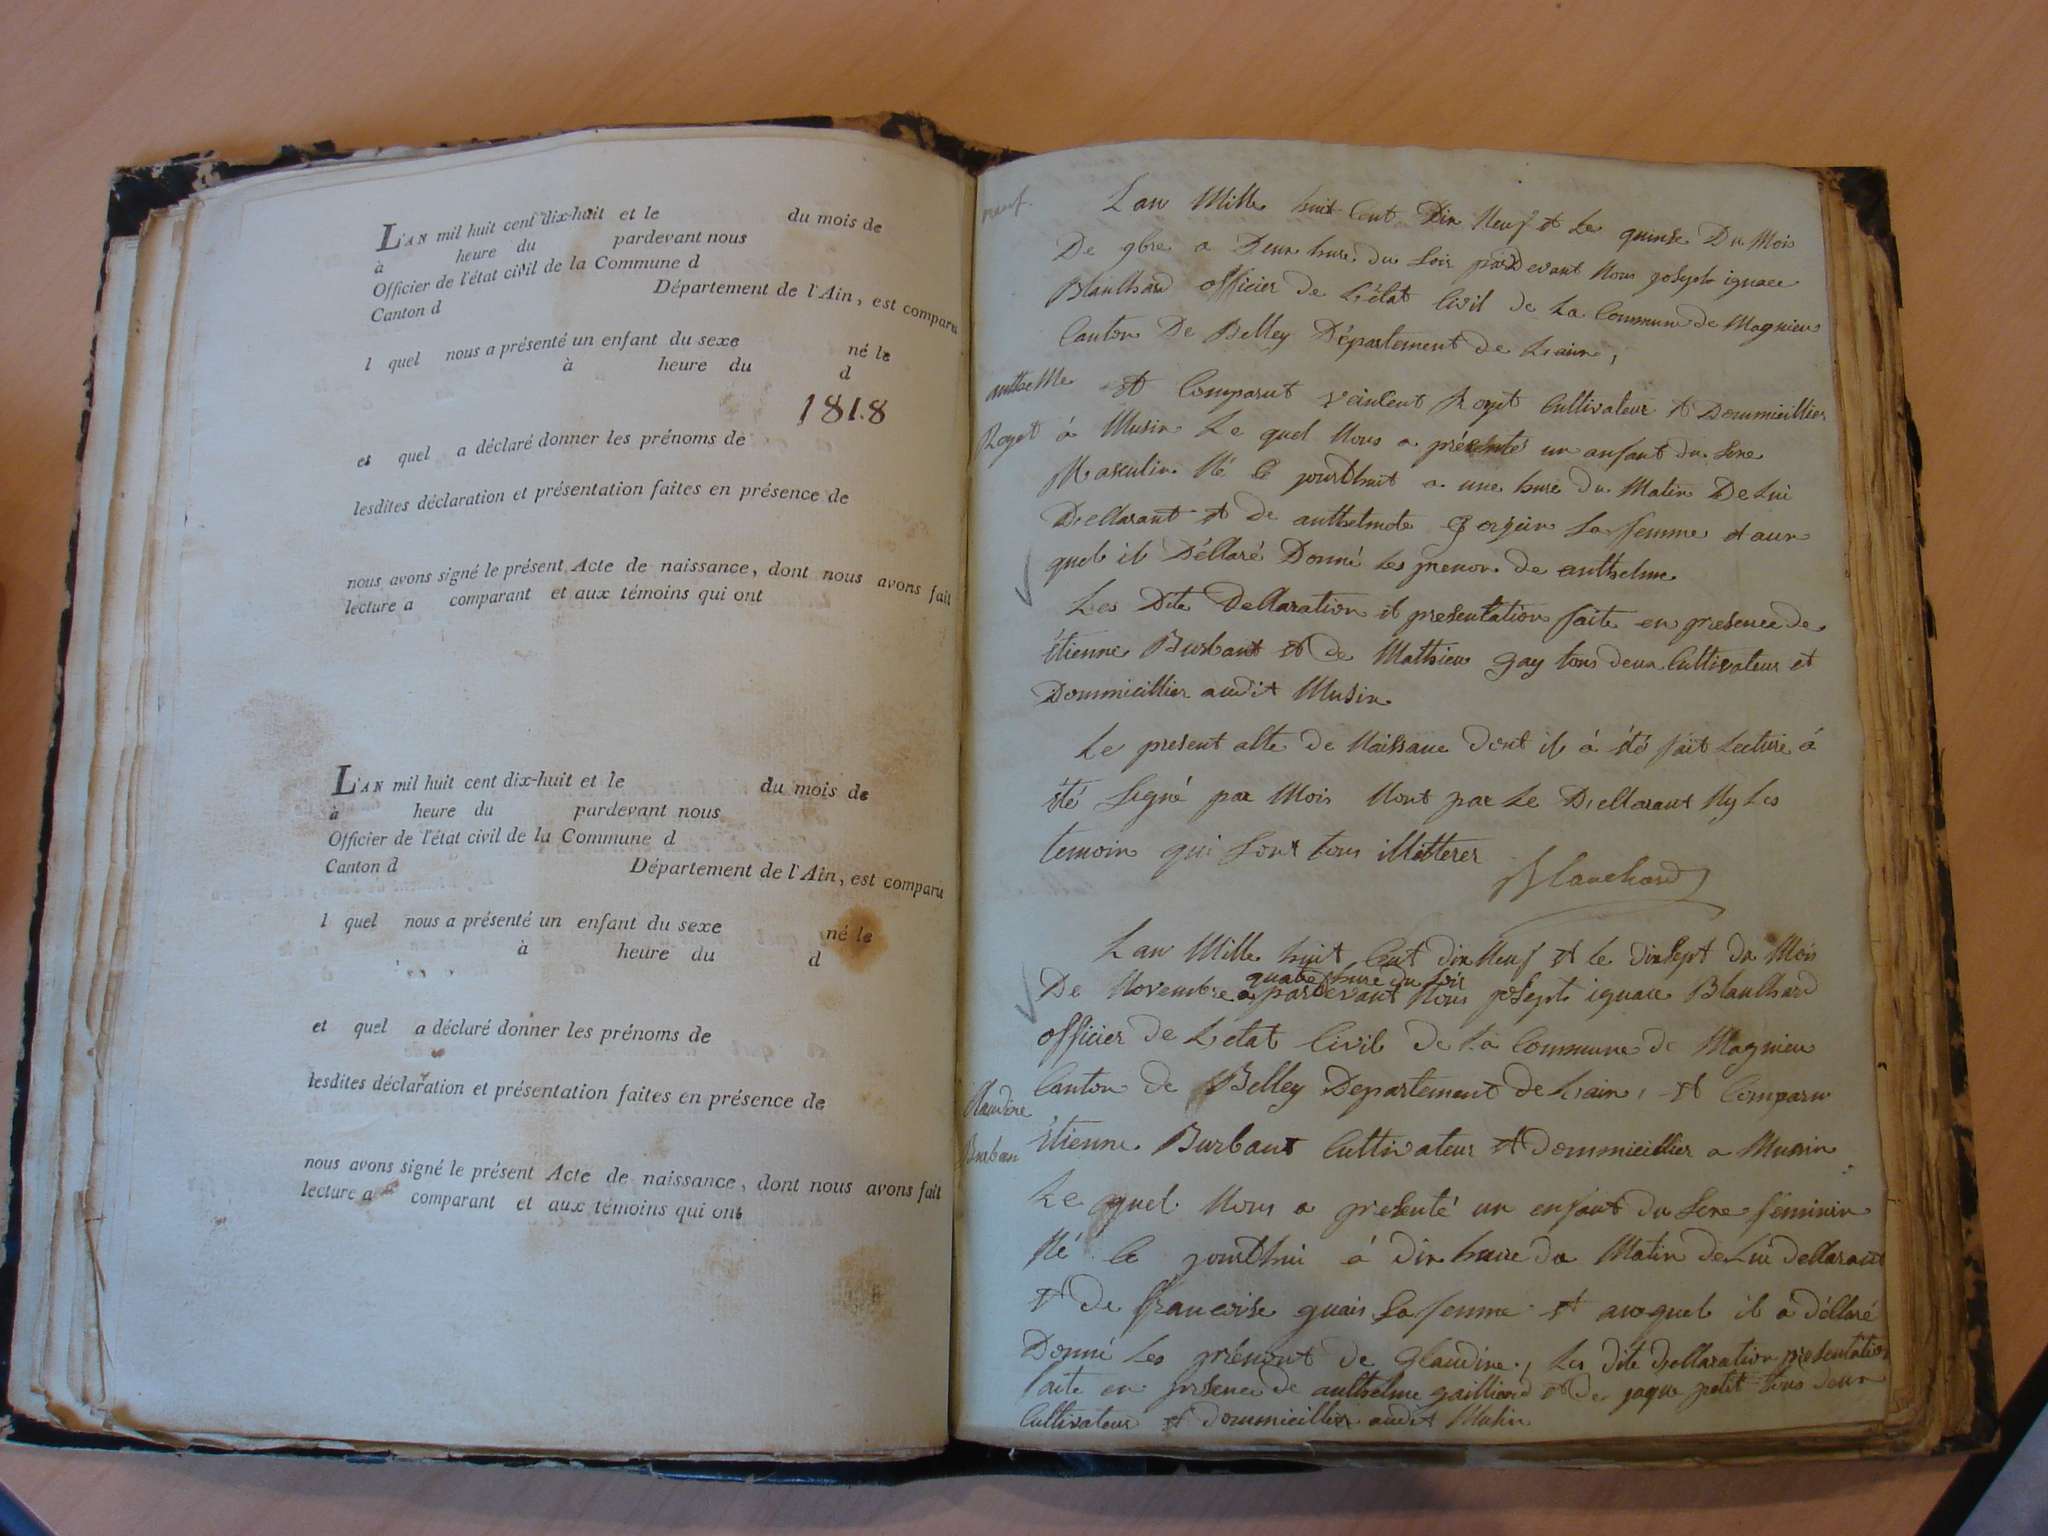 L'AN mil huit cent dix-huit et le du mois de
à heure du pardevant nous
Officier de l'état civil de la Commune d
Canton d Département de l'Ain, est comparu
l quel nous a présenté un enfant du sexe né le
à heure du d
1818
et quel a déclaré donner les prénoms de
lesdites déclaration et présentation faites en présence de
nous avons signé le présent Acte de naissance, dont nous avons fait
lecture a comparant et aux témoins qui ont
L'AN mil huit cent dix-huit et le du mois de
à heure du pardevant nous
Officier de l'état civil de la Commune d
Canton d Département de l'Ain, est comparu
l quel nous a présenté un enfant du sexe né le
à heure du d
et quel a déclaré donner les prénoms de
lesdites déclaration et présentation faites en présence de
nous avons signé le présent Acte de naissance, dont nous avons fait
lecture a comparant et aux témoins qui ont
Lan Mille huit Cent Dix Neuf et Le quinse Du Mois
De 9bre a Deux hure du Soir pardevant Nous joseph ignace
Blanchard officier de L'état Civil de La Commune de Magnieu
Canton De Belley Département de Lain,
anthelMe
Roget
et Comparut vaincent Roget Cultivateur et Dommicillier
à Musin Le quel Nous a présenté un anfant du Sexe
Masculin Né Ce jourdhuit a une hure du Matin De Lui
Decllarant et de anthelmete Sa femme et aux
quel il Décllaré Donné Les prenon de anthelme
Les Dite Decllaration et presentation faite en presence de
étienne Burbant et de Mathieu gay tous deux Cultivateur et
Dommicillier audit Musin
Le present acte de Naissance dont il à été fait Lecture à
été Signé par Mois Nont par Le Decllarant Ny Les
temoin qui Sont tous illitterer
Blanchard
Lan Mille huit Cent dix Neuf et le dixsept du Mois
quatre hure du Soir
De Novembre a pardevant Nous joseph ignace Blanchard
officier de L'etat Civil de La Commune de Magnieu
Canton de Belley Departement de Lain, et Comparu
Claudine
Burban
étienne Burbant Cultivateur et dommicillier a Musin
Le quel Nous a presenté un enfant du Sexe féminin
Né Ce jourdhui à dix hure du Matin de Lui decllarant
et de francoise guais Sa femme et auxquel il a décllaré
Donné Les prénont de Glaudine, Les dite decllaration presentation
faite en presence de anthelme gailliard et de jaque petit tous deux
Cultivateur et dommicillier audit Musin